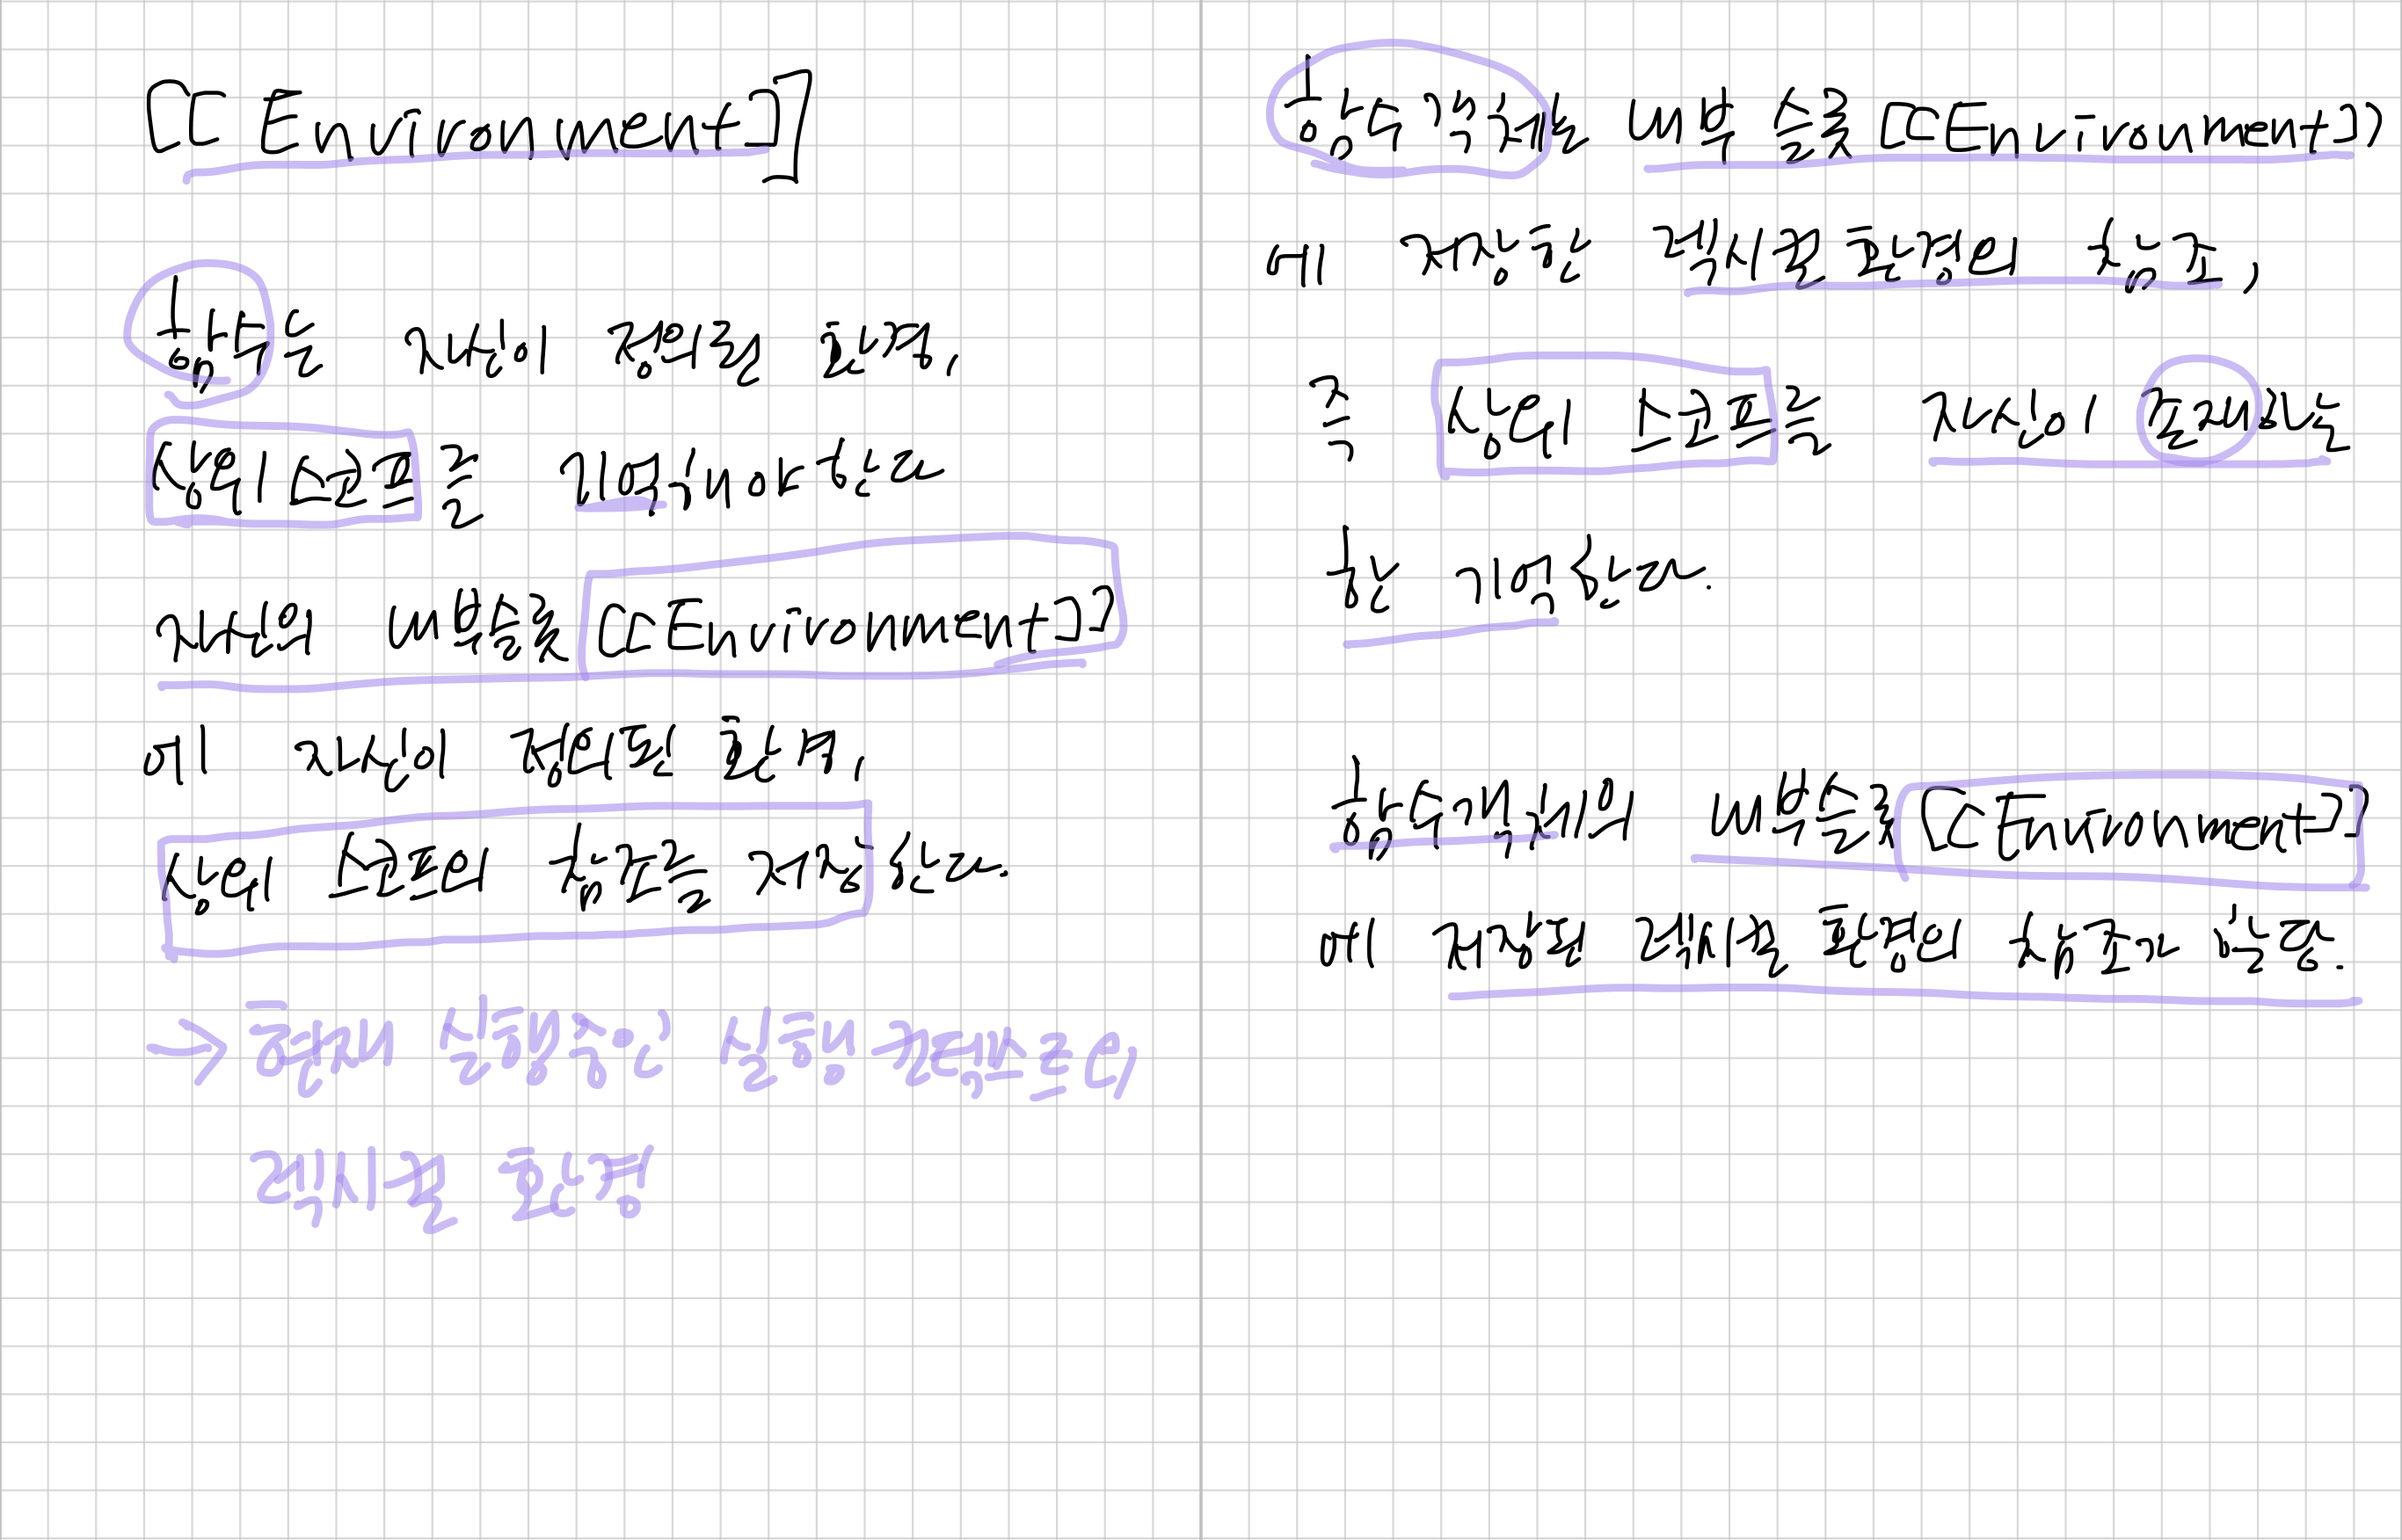 [[Environment]]
함수는 자신이 정의된 환경,
상위스코프를 기억해야한다
자신의 내부슬롯 [[Environment]]
에 자신이 정의된 환경,
상위 스코프의 참조를 저장한다.
→ 현재 실행중인 실행 컨텍스트의
렉시컬 환경
함수객체는 내부 슬롯 [[Environment]]
에 저장한 렉시컬환경의 참조,
즉 상위 스코프를 자신이 존재하는
한 기억한다.
함수객체의 내부슬롯 [[Environment]]
에 저장된 렉시컬 환경의 참조가 할당.